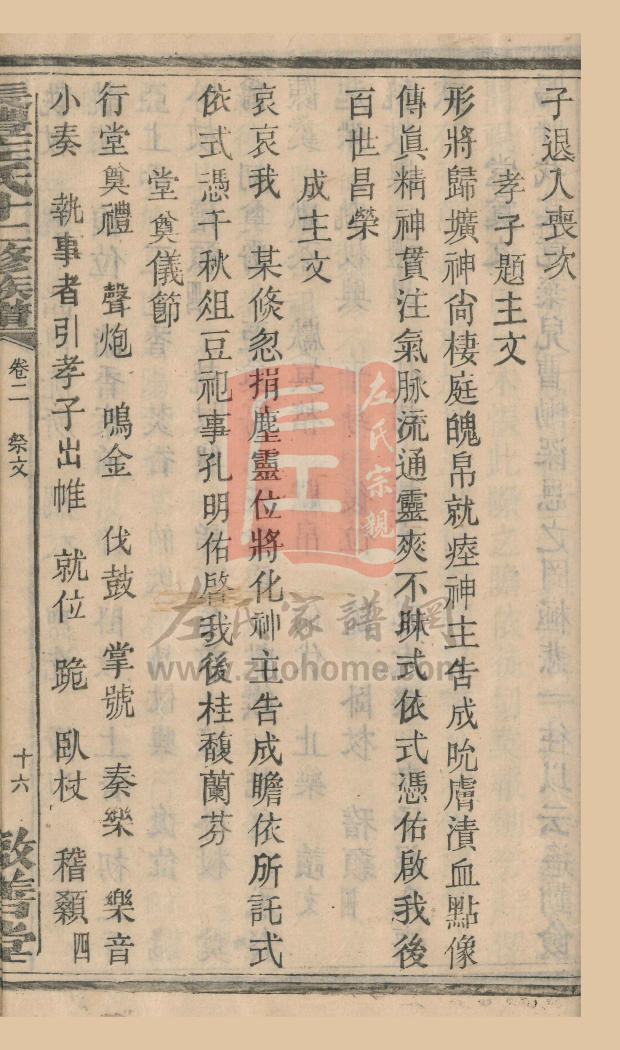 子退入喪次
孝子題主文
形將歸壙神尙棲庭魄帛就瘞神主告成吮膚漬血點像
傳眞精神貫注氣脉流通靈爽不昧式依式憑佑啟我後
百世昌榮
成主文
哀哀我 某倐忽捐塵靈位將化神主告成瞻依所託式
依式憑千秋俎豆祀事孔明佑啓我後桂馥蘭芬
堂奠儀節
行堂奠禮 聲炮 鳴金 伐鼓 掌號 奏樂 樂音
小奏 執事者引孝子出帷 就位 跪 臥杖 稽顙四
左氏十二修族譜
卷二 祭文
十六
敘善堂
左氏宗親
左氏家譜網
www.zuohome.com